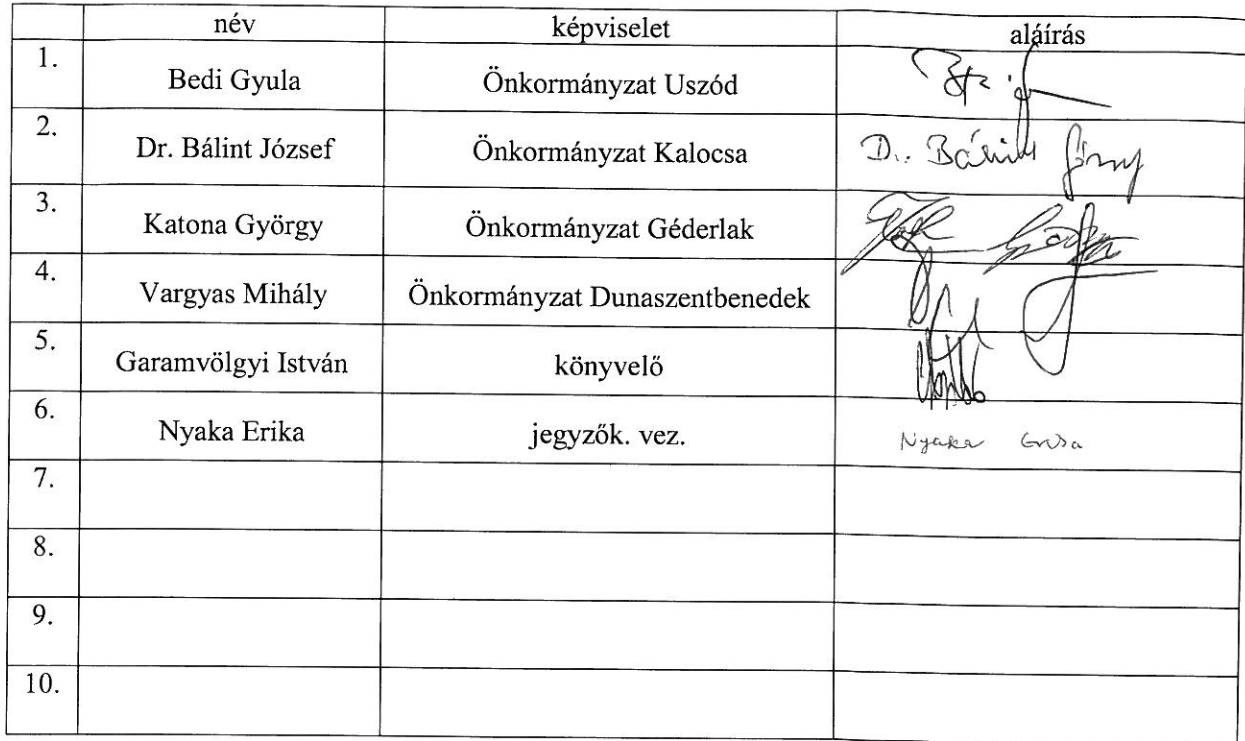 név képviselet aláírás
1. Bedi Gyula Önkormányzat Uszód
2. Dr. Bálint József Önkormányzat Kalocsa D.. Bálint József
3. Katona György Önkormányzat Géderlak
4. Vargyas Mihály Önkormányzat Dunaszentbenedek
5. Garamvölgyi István könyvelő
6. Nyaka Erika jegyzők. vez. Nyaka Erika
7.
8.
9.
10.